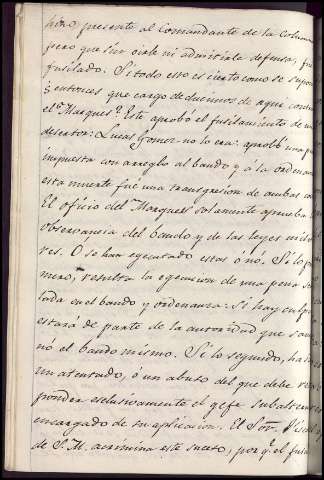 hizo presente al Comandante de la Colum
pero que sin oirle ni admitirle defensa, fue
fusilado. Si todo esto es cierto como se supo
¿ entonces que cargo deducimos de aqui contra
el Marques? Este aprobó el fusilamiento de un
desertor: Lucas Gomez no lo era: aprobó una p
impuesta con arreglo al bando y á la ordenan
esta muerte fué una transgresion de ambas co
El oficio del Marques solamente aprueba l
observancia del bando y de las leyes milita
res. O se han egecutado estas ó nó. Si lo p
mero, resulta la egecucion de una pena seña
lada en el bando y ordenanza: Si hay culpa
estará de parte de la autoridad que san
nó el bando mismo. Si lo segundo, ha s
un atentado, ó un abuso del que debe res
ponder esclusivamente el gefe subalterno
encargado de su aplicacion. El Sor. Fiscal
de S. M. acrimina este suceso, por q.e el fusi